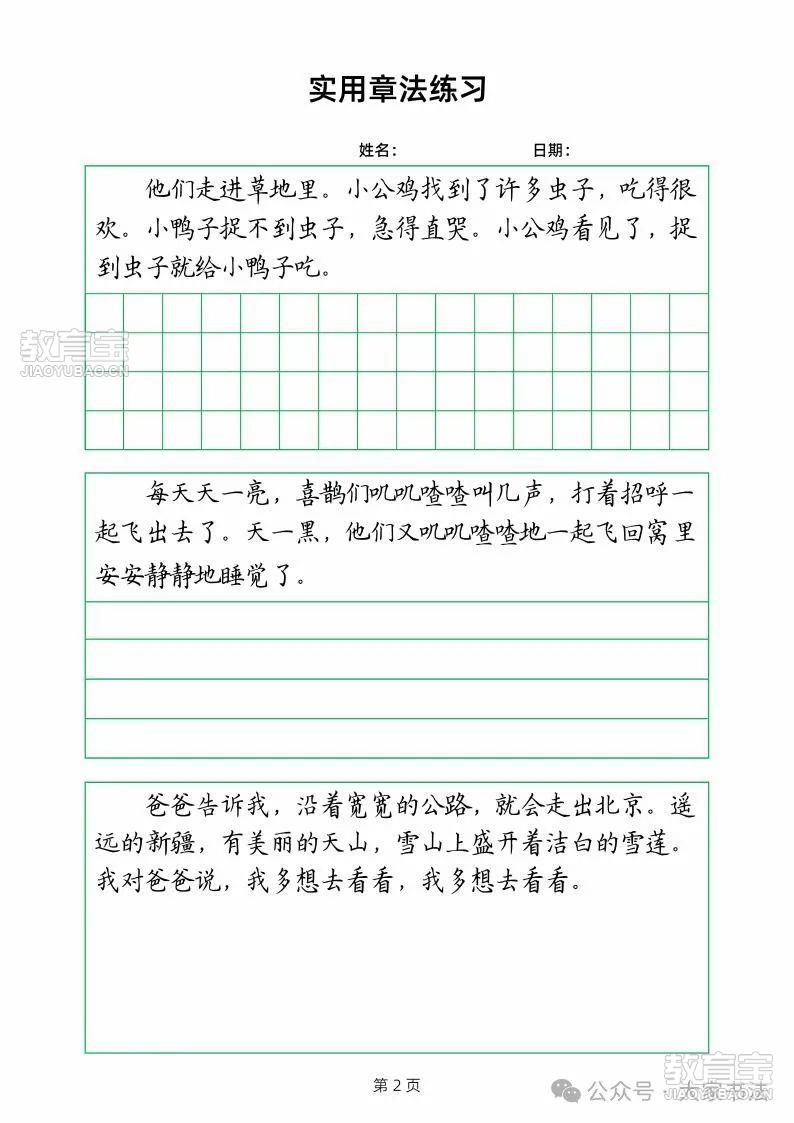 实用章法练习
姓名：
日期：
他们走进草地里。小公鸡找到了许多虫子，吃得很
欢。小鸭子捉不到虫子，急得直哭。小公鸡看见了，捉
到虫子就给小鸭子吃。
教育宝
JIAOYUBAO.CN
每天天一亮，喜鹊们叽叽喳喳叫几声，打着招呼一
起飞出去了。天一黑，他们又叽叽喳喳地一起飞回窝里
安安静静地睡觉了。
爸爸告诉我，沿着宽宽的公路，就会走出北京。遥
远的新疆，有美丽的天山，雪山上盛开着洁白的雪莲。
我对爸爸说，我多想去看看，我多想去看看。
第 2 页
教育宝
JIAOYUBAO.CN
公众号 · 大家书法